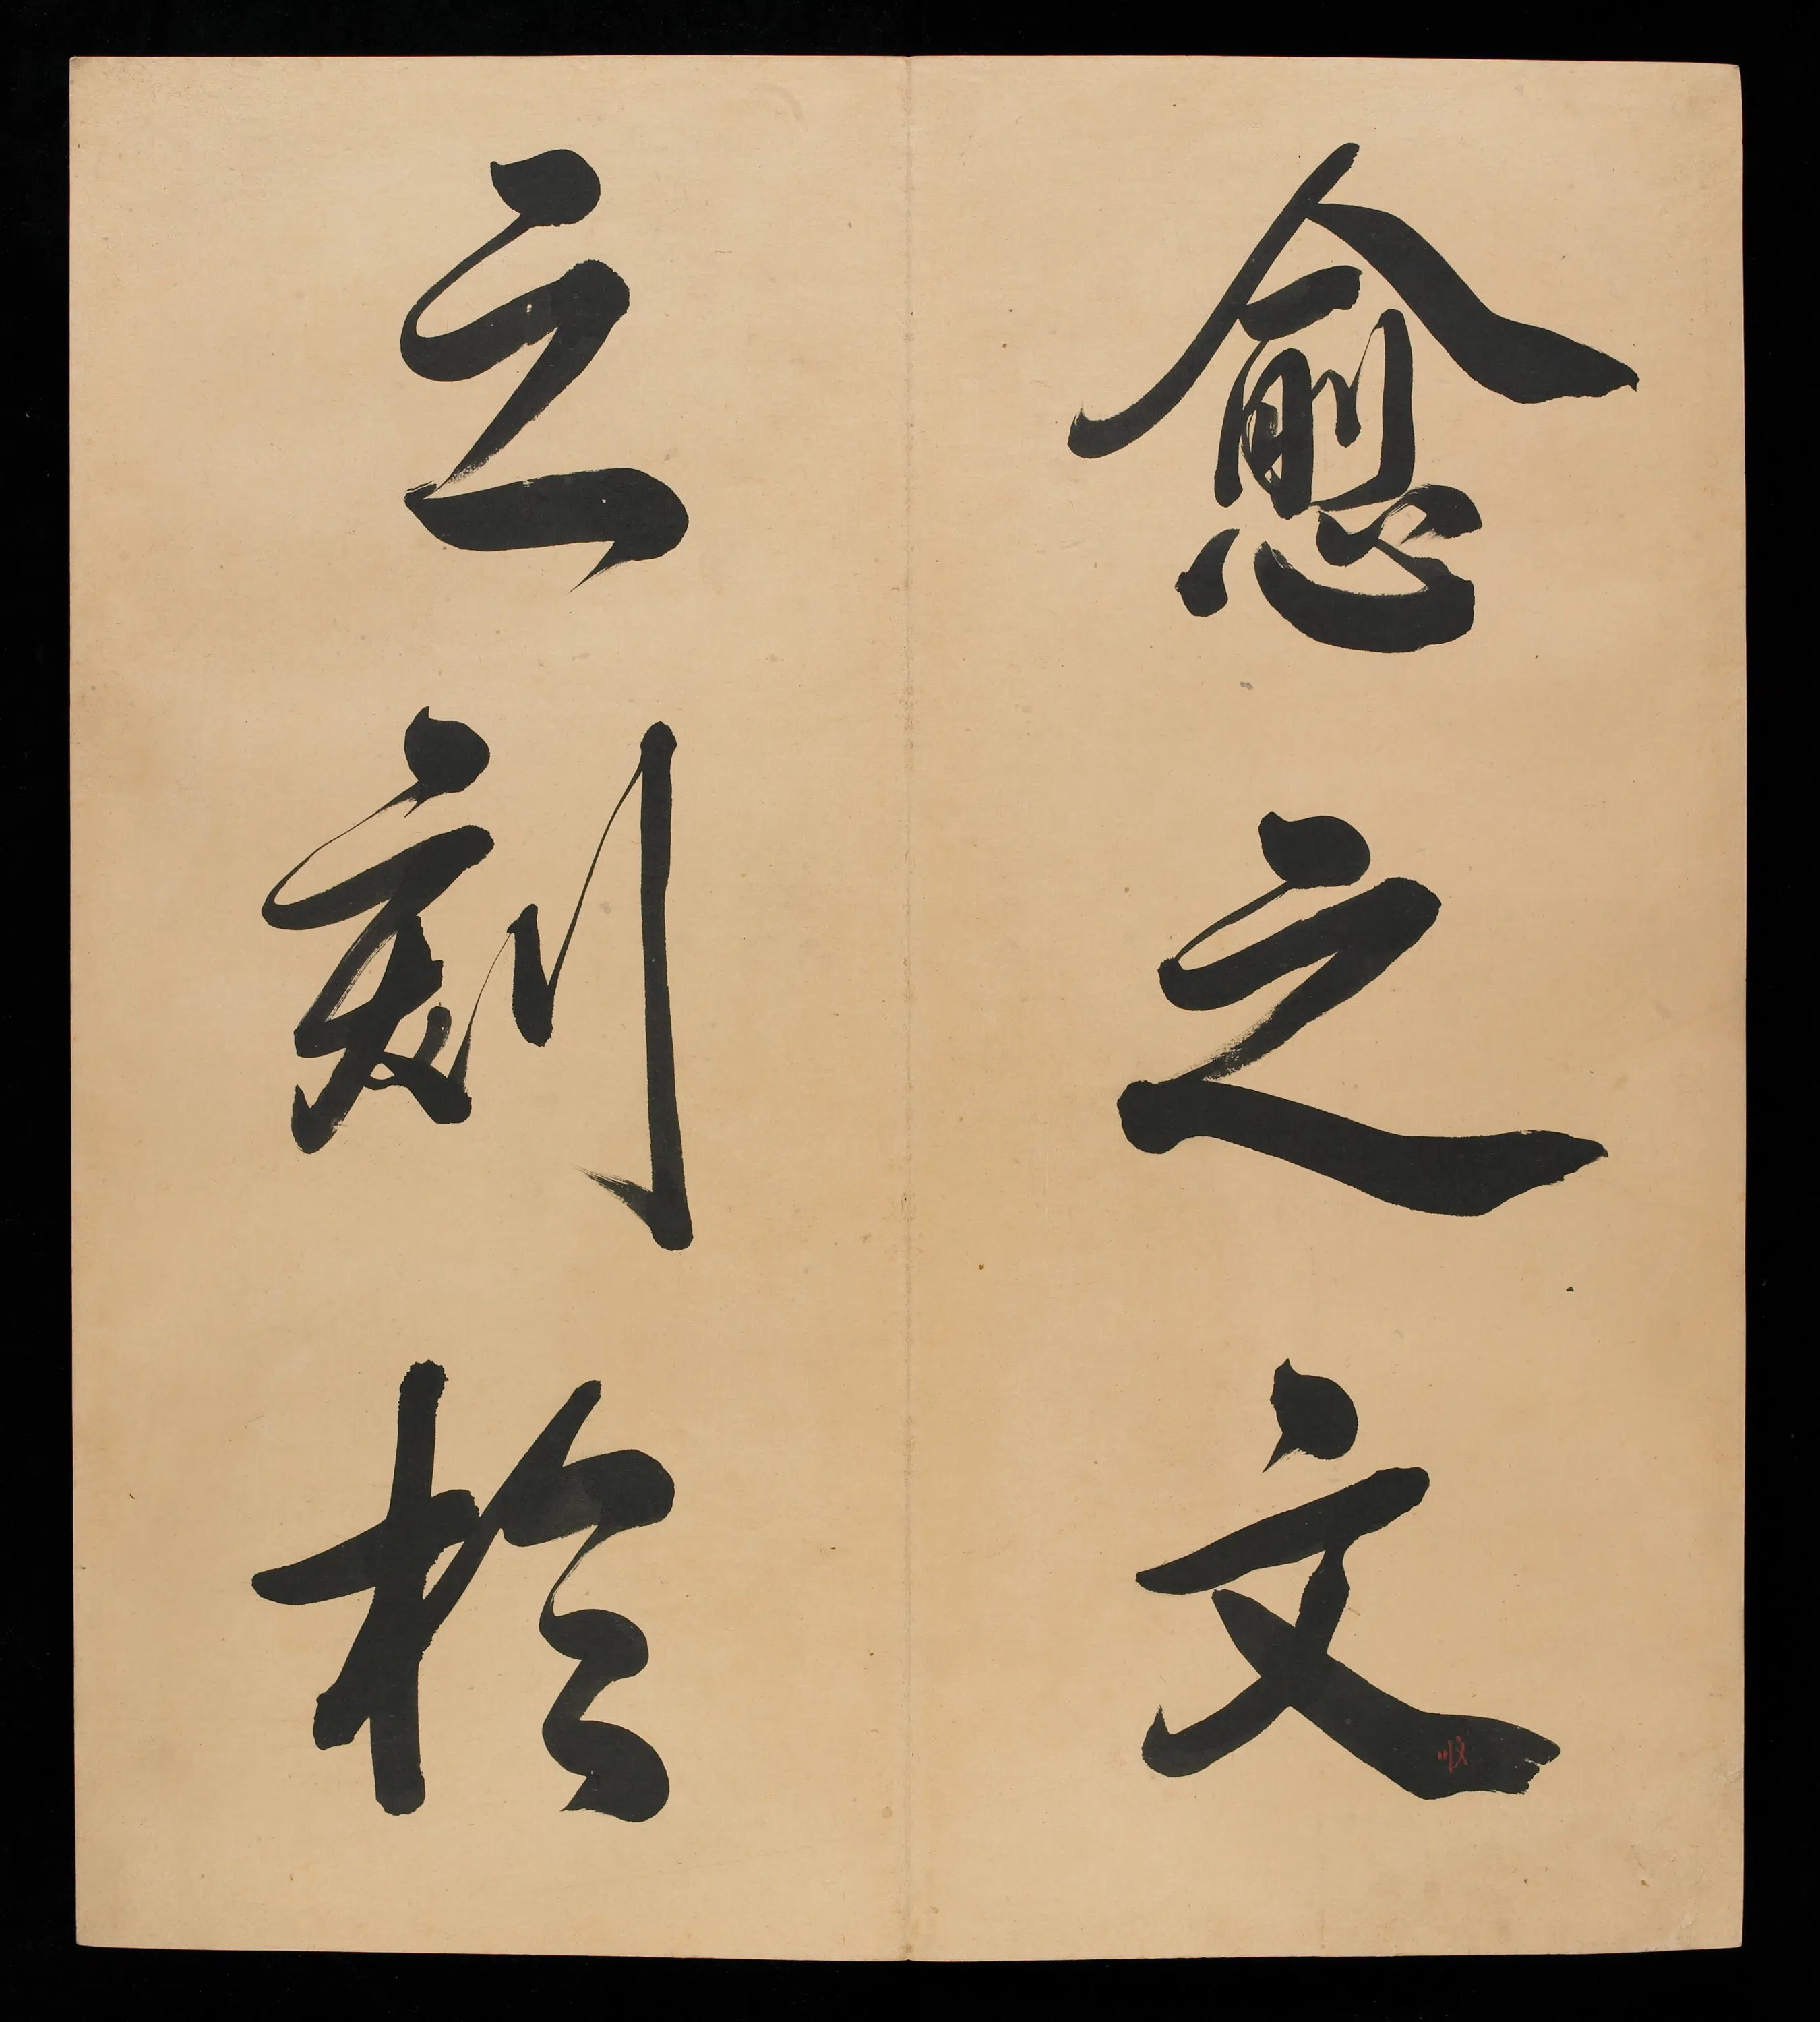 愈之文
之刻於